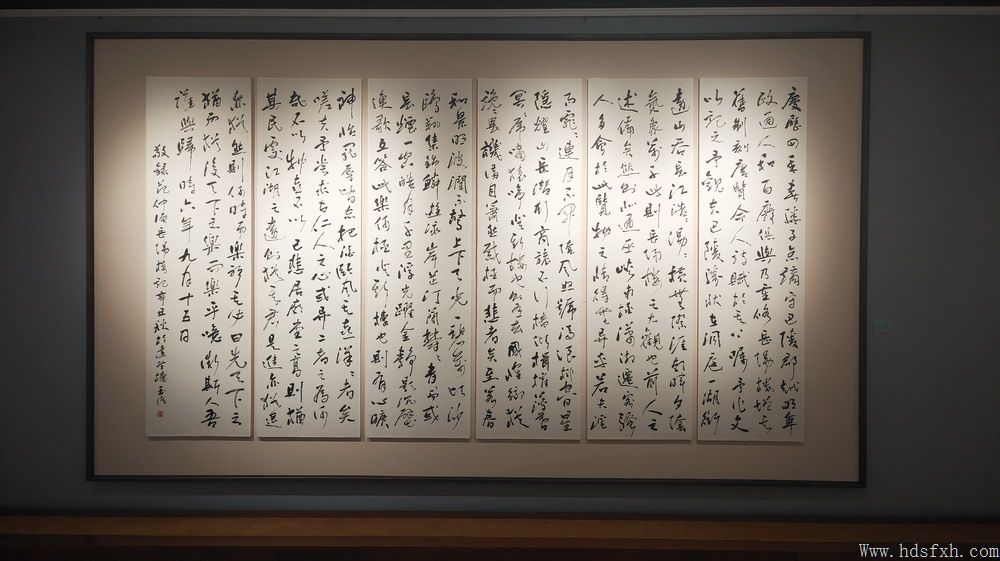 慶曆四年春滕子京謫守巴陵郡越明年
政通人和百廢俱興乃重修岳陽樓增其
舊制刻唐賢今人詩賦於其上屬予作文
以記之予觀夫巴陵勝狀在洞庭一湖銜
遠山吞長江浩浩湯湯橫無際涯朝暉夕陰
氣象萬千此則岳陽樓之大觀也前人之
述備矣然則北通巫峽南極瀟湘遷客騷
人多會於此覽物之情得無異乎若夫淫
雨霏霏連月不開陰風怒號濁浪排空日星
隱耀山岳潛形商旅不行檣傾楫摧薄暮
冥冥虎嘯猿啼登斯樓也則有去國懷鄉憂
讒畏譏滿目蕭然感極而悲者矣至若春
和景明波瀾不驚上下天光一碧萬頃沙
鷗翔集錦鱗游泳岸芷汀蘭郁郁青青而或
長煙一空皓月千里浮光躍金靜影沉璧
漁歌互答此樂何極登斯樓也則有心曠
神怡寵辱皆忘把酒臨風其喜洋洋者矣
嗟夫予嘗求古仁人之心或異二者之為何
哉不以物喜不以己悲居廟堂之高則憂
其民處江湖之遠則憂其君是進亦憂退
亦憂然則何時而樂耶其必曰先天下之
憂而憂後天下之樂而樂乎噫微斯人吾
誰與歸 時六年九月十五日
敬錄范仲淹岳陽樓記辛丑秋於
Www.hdsfxh.com